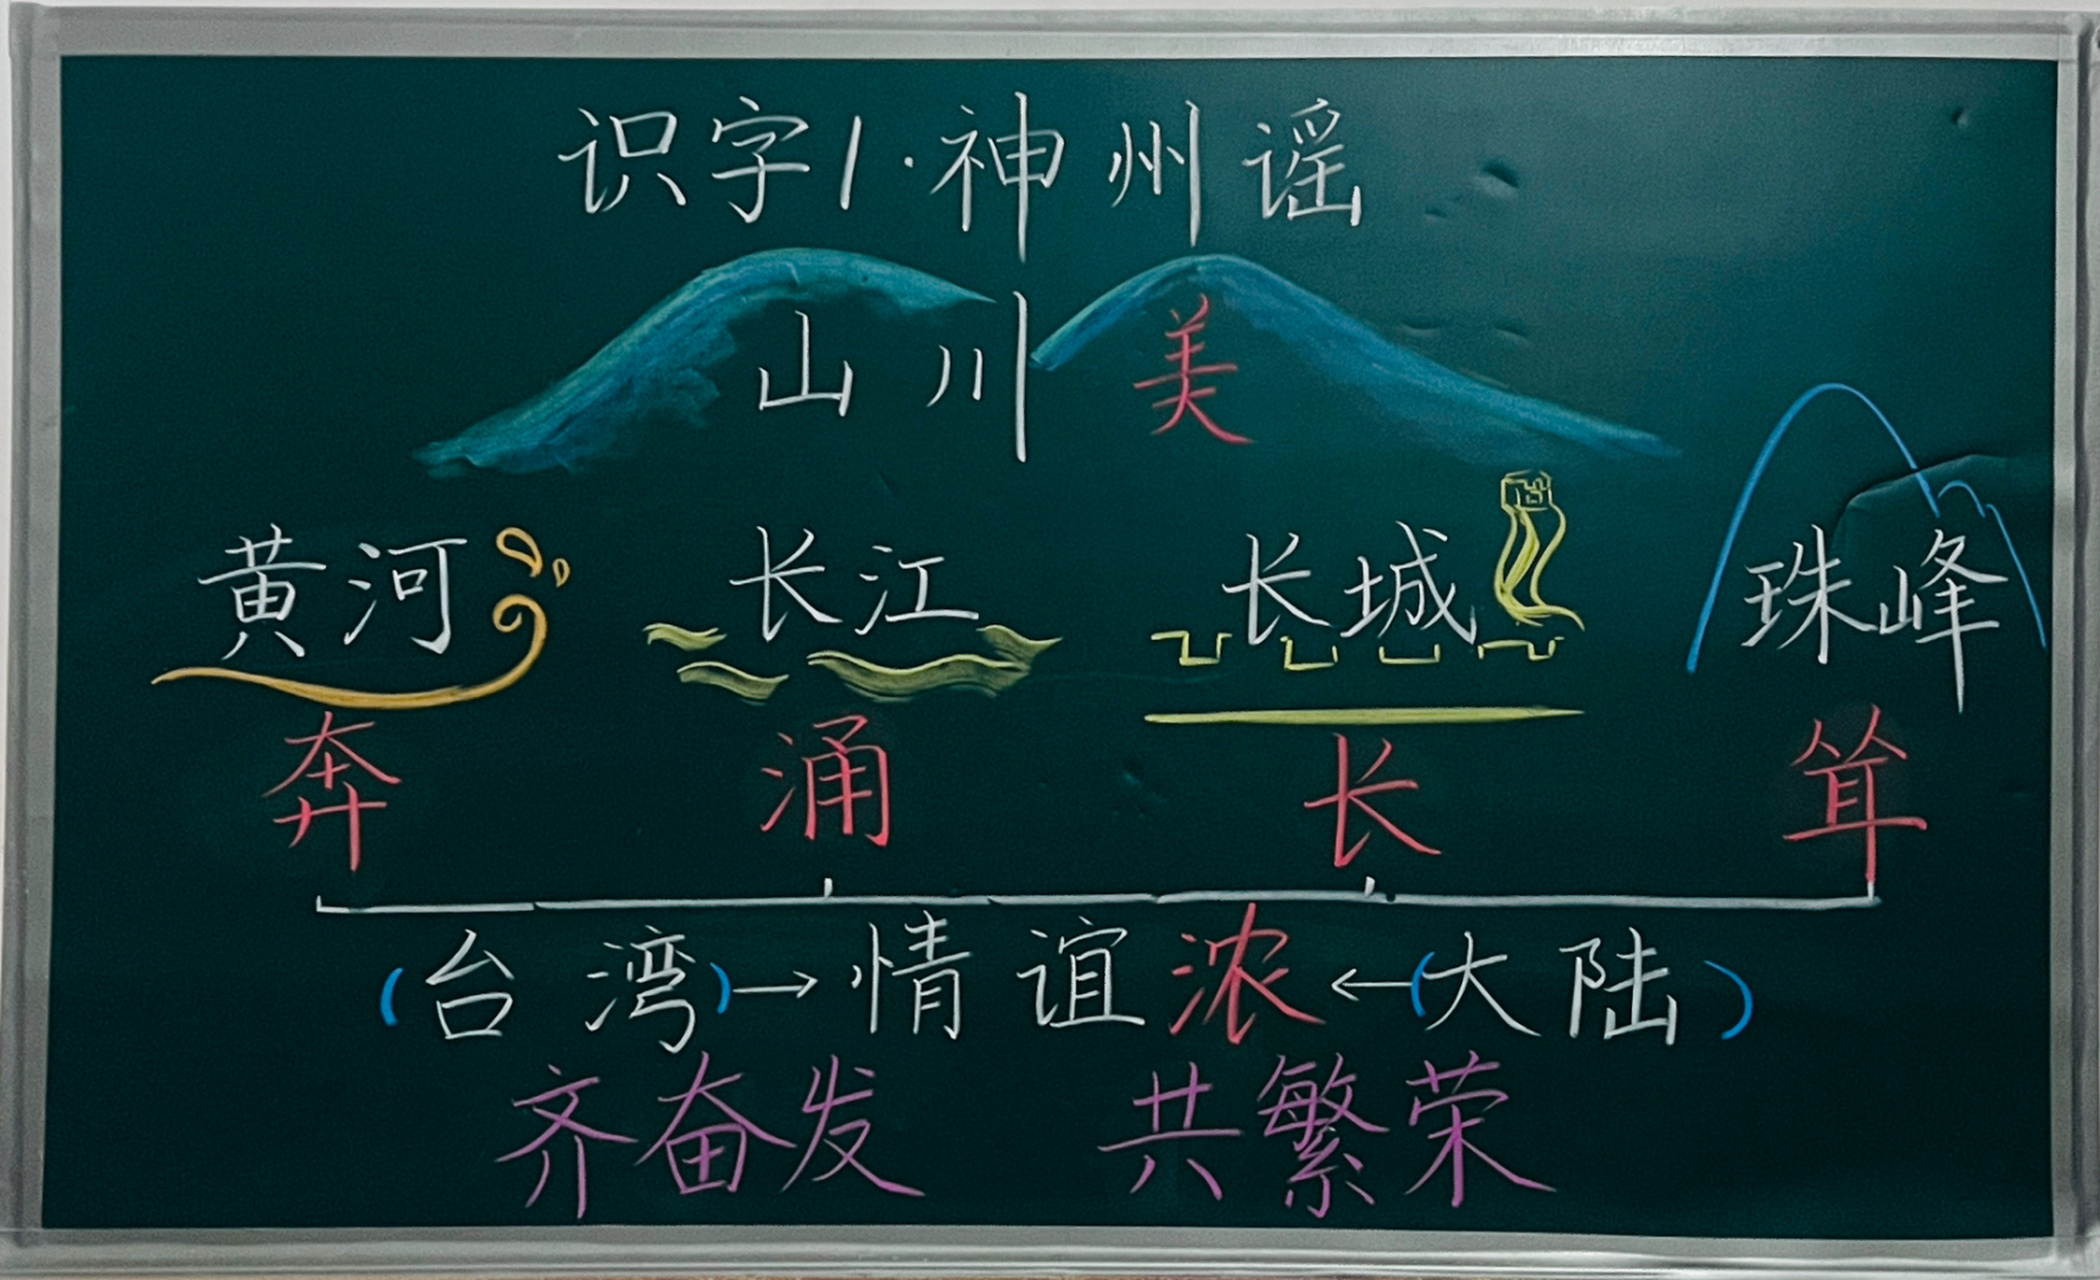 识字1·神州谣
山川美
黄河 长江 长城 珠峰
奔 涌 长 耸
(台湾)→情谊浓←(大陆)
齐奋发 共繁荣